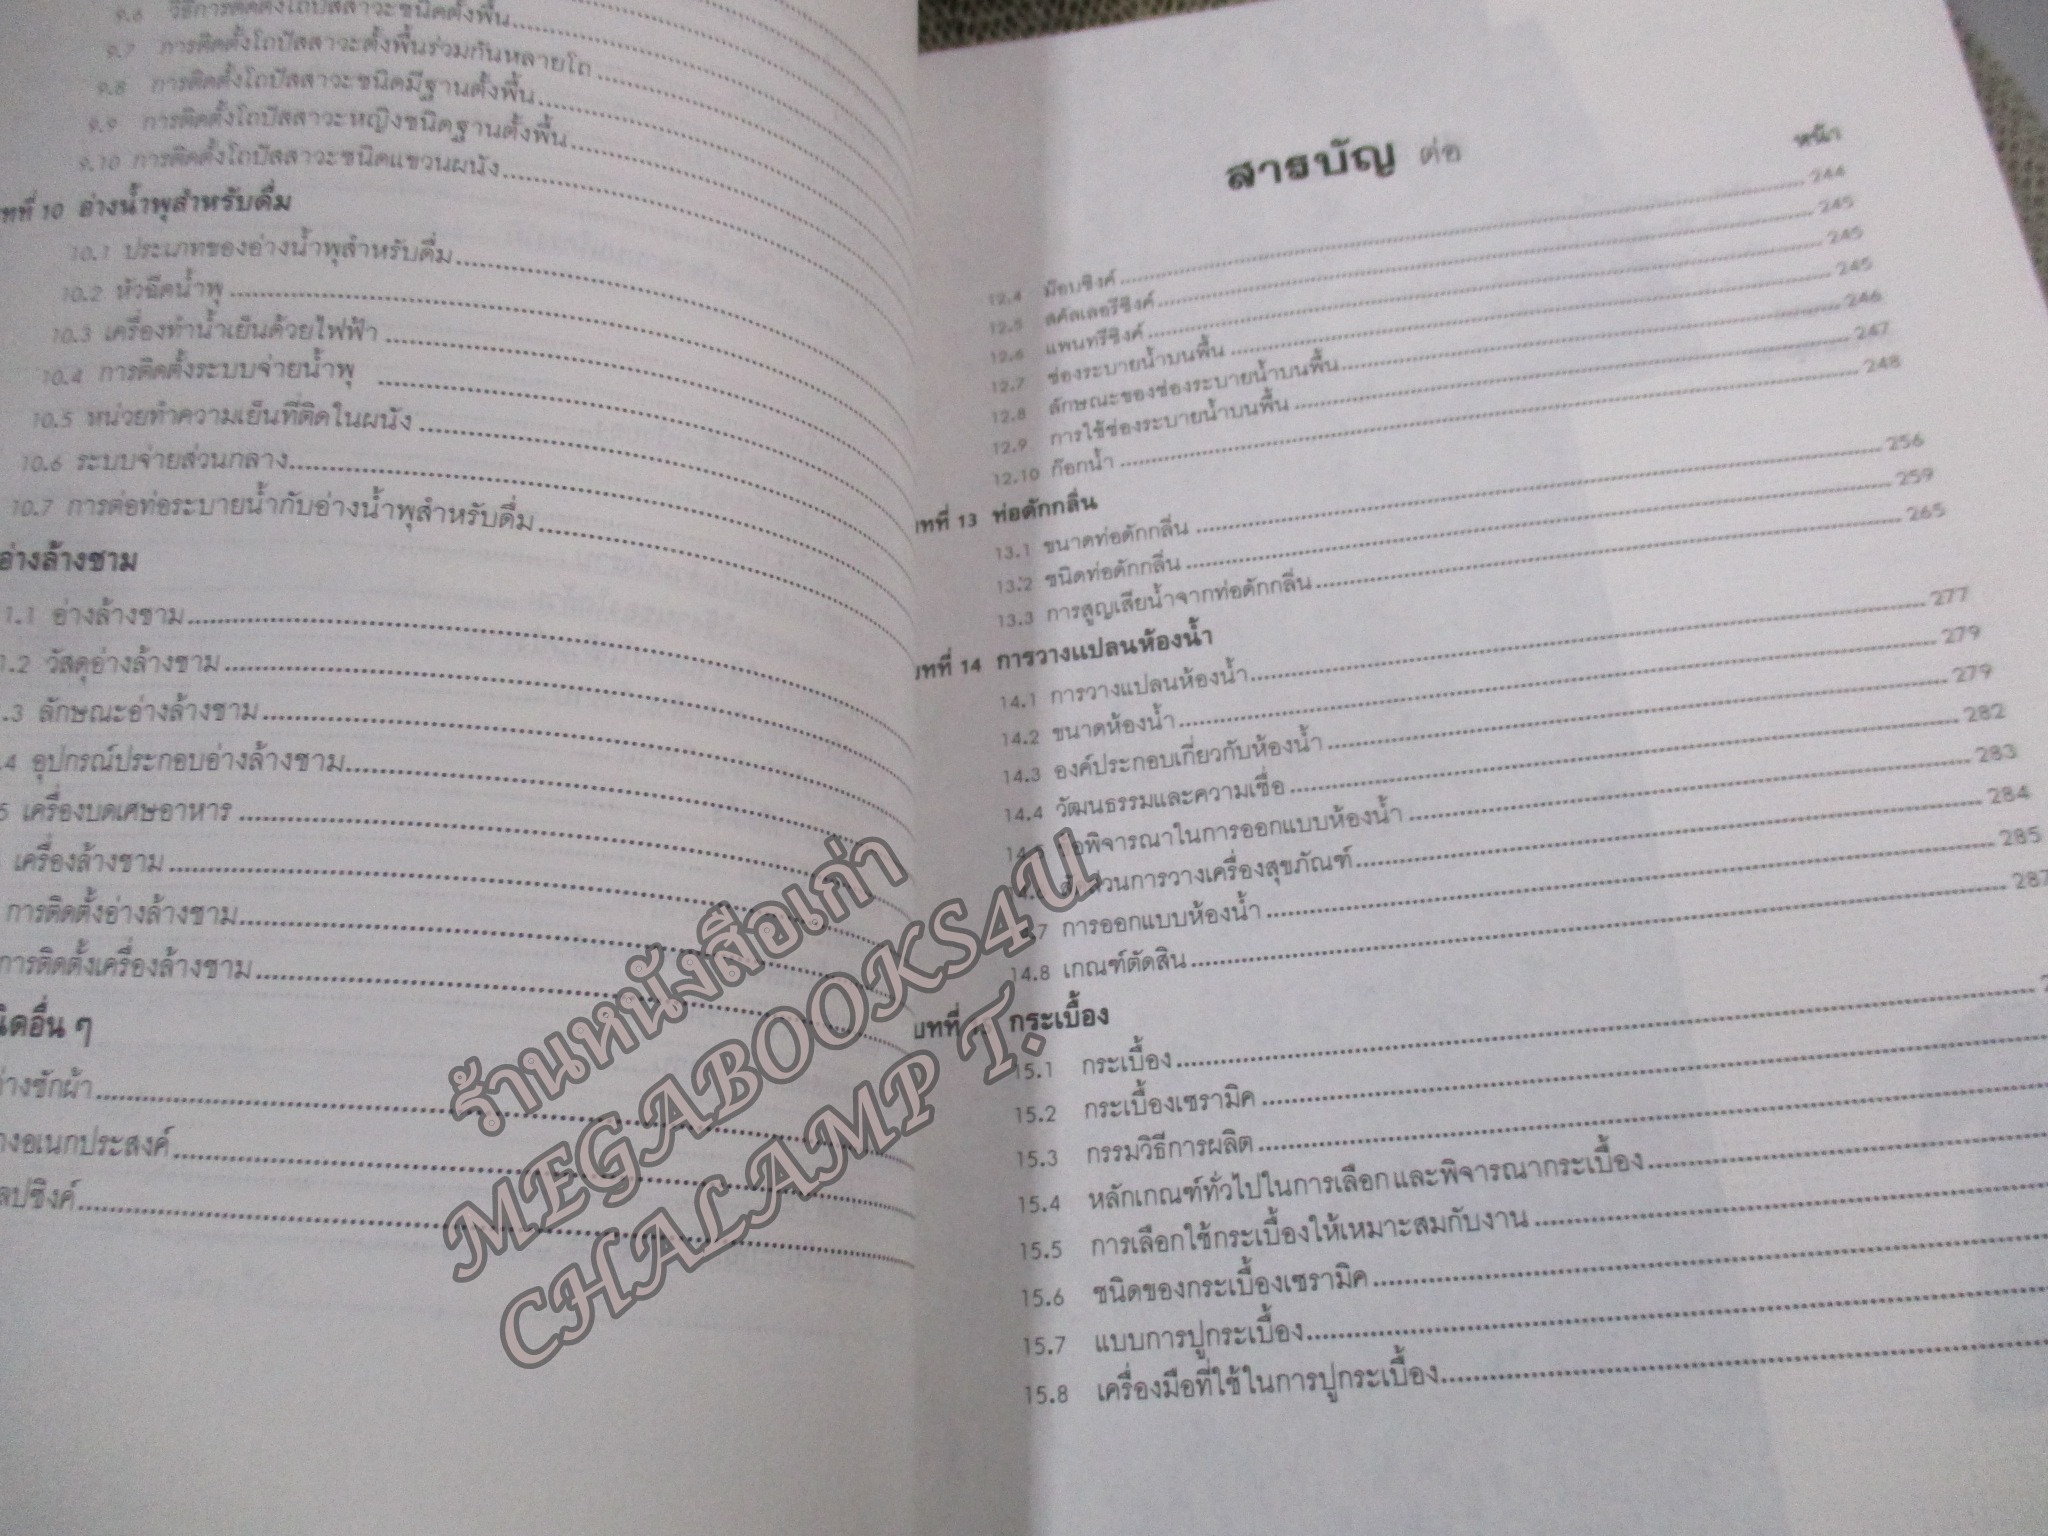 9.6 วิธีการติดตั้งโถปัสสาวะชนิดตั้งพื้น
9.7 การติดตั้งโถปัสสาวะตั้งพื้นร่วมกันหลายโถ
9.8 การติดตั้งโถปัสสาวะชนิดมีฐานตั้งพื้น
9.9 การติดตั้งโถปัสสาวะหญิงชนิดฐานตั้งพื้น
9.10 การติดตั้งโถปัสสาวะชนิดแขวนผนัง
ทที่ 10 อ่างน้ำพุสำหรับดื่ม
10.1 ประเภทของอ่างน้ำพุสำหรับดื่ม
10.2 หัวฉีดน้ำพุ
10.3 เครื่องทำน้ำเย็นด้วยไฟฟ้า
10.4 การติดตั้งระบบจ่ายน้ำพุ
10.5 หน่วยทำความเย็นที่ติดในผนัง
10.6 ระบบจ่ายส่วนกลาง
10.7 การต่อท่อระบายน้ำกับอ่างน้ำพุสำหรับดื่ม
อ่างล้างชาม
1.1 อ่างล้างชาม
1.2 วัสดุอ่างล้างชาม
.3 ลักษณะอ่างล้างชาม
.4 อุปกรณ์ประกอบอ่างล้างชาม
5 เครื่องบดเศษอาหาร
เครื่องล้างชาม
การติดตั้งอ่างล้างชาม
การติดตั้งเครื่องล้างชาม
นิดอื่น ๆ
างซักผ้า
างอเนกประสงค์
ลปซิงค์
สารบัญ ต่อ
หน้า
12.4 ม๊อบซิงค์ 244
12.5 สคัลเลอรีซิงค์ 245
12.6 แพนทรีซิงค์ 245
12.7 ช่องระบายน้ำบนพื้น 245
12.8 ลักษณะของช่องระบายน้ำบนพื้น 246
12.9 การใช้ช่องระบายน้ำบนพื้น 247
12.10 ก๊อกน้ำ 248
บทที่ 13 ท่อดักกลิ่น
13.1 ขนาดท่อดักกลิ่น 256
13.2 ชนิดท่อดักกลิ่น 259
13.3 การสูญเสียน้ำจากท่อดักกลิ่น 265
บทที่ 14 การวางแปลนห้องน้ำ
14.1 การวางแปลนห้องน้ำ 277
14.2 ขนาดห้องน้ำ 279
14.3 องค์ประกอบเกี่ยวกับห้องน้ำ 279
14.4 วัฒนธรรมและความเชื่อ 282
14.5 ข้อพิจารณาในการออกแบบห้องน้ำ 283
14.6 สัดส่วนการวางเครื่องสุขภัณฑ์ 284
14.7 การออกแบบห้องน้ำ 285
14.8 เกณฑ์ตัดสิน 287
บทที่ 15 กระเบื้อง
15.1 กระเบื้อง 2
15.2 กระเบื้องเซรามิค
15.3 กรรมวิธีการผลิต
15.4 หลักเกณฑ์ทั่วไปในการเลือกและพิจารณากระเบื้อง
15.5 การเลือกใช้กระเบื้องให้เหมาะสมกับงาน
15.6 ชนิดของกระเบื้องเซรามิค
15.7 แบบการปูกระเบื้อง
15.8 เครื่องมือที่ใช้ในการปูกระเบื้อง
ร้านหนังสือเก่า
MEGABOOKS4U
CHALAMP T.